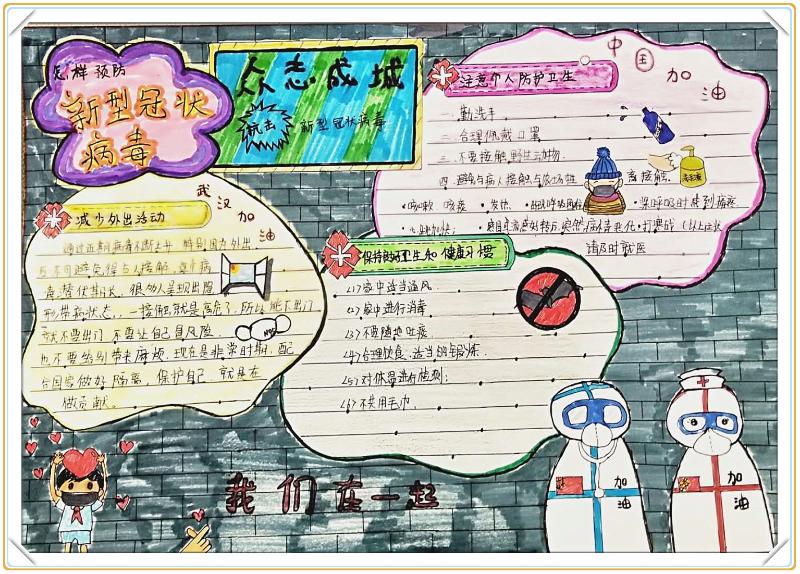 怎样预防
新型冠状
病毒
众志成城
抗击
新型冠状病毒
中国加油
注意个人防护卫生
一. 勤洗手.
二. 合理佩戴口罩
三. 不要接触野生动物.
四. 避免与病人接触
离接触.
洗手液
咳痰 · 发热
请及时就医
武汉加油
减少外出活动
通过近期病情不断上升
不可避免得与人接触
形带病状态. 一接触就是高危了, 所以能不出门
就不要出门 不要让自己冒风险,
也不要给别人带来麻烦. 现在是非常时期. 配
合国家做好隔离, 保护自己 就是在
做贡献.
保持良好卫生和健康习惯
<1> 家中适当通风
<2> 家中进行消毒
<3> 不要随地吐痰
<4> 合理饮食. 适当的锻炼.
<5> 对体温进行检测:
<6> 不共用毛巾.
N95
我们在一起
加油
加油